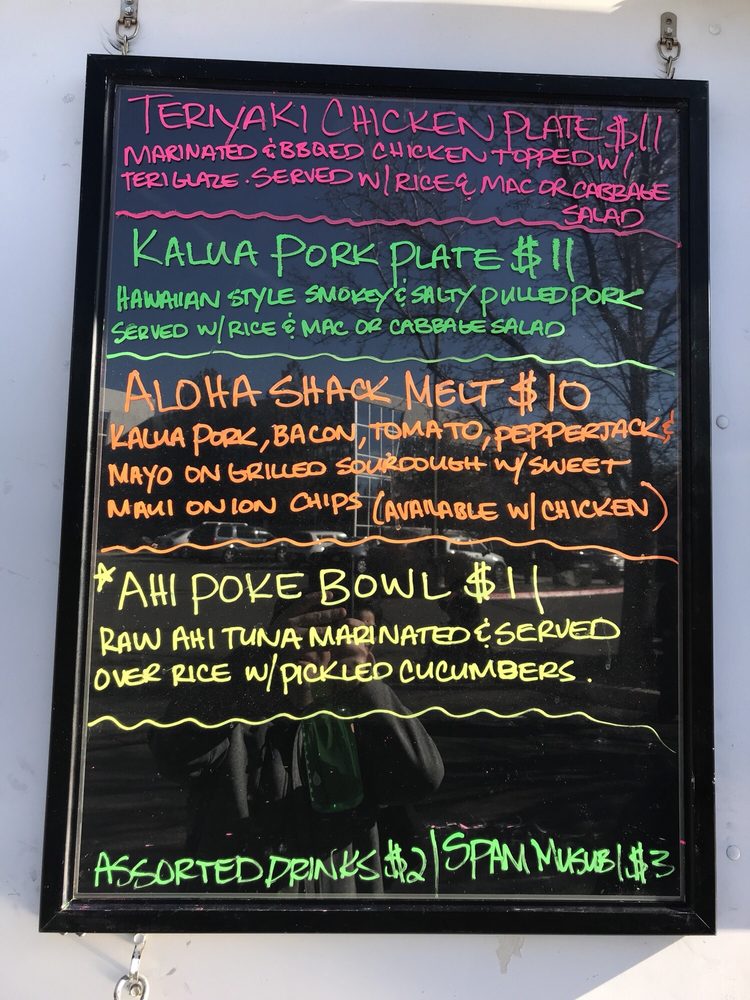 TERIYAKI CHICKEN PLATE $11
MARINATED & BBQED CHICKEN TOPPED W/
TERI GLAZE. SERVED W/ RICE & MAC OR CABBAGE
SALAD
KALUA PORK PLATE $11
HAWAIIAN STYLE SMOKEY & SALTY PULLED PORK
SERVED W/ RICE & MAC OR CABBAGE SALAD
ALOHA SHACK MELT $10
KALUA PORK, BACON, TOMATO, PEPPERJACK &
MAYO ON GRILLED SOURDOUGH W/ SWEET
MAUI ONION CHIPS (AVAILABLE W/ CHICKEN)
*AHI POKE BOWL $11
RAW AHI TUNA MARINATED & SERVED
OVER RICE W/ PICKLED CUCUMBERS.
ASSORTED DRINKS $2 | SPAM MUSUBI $3